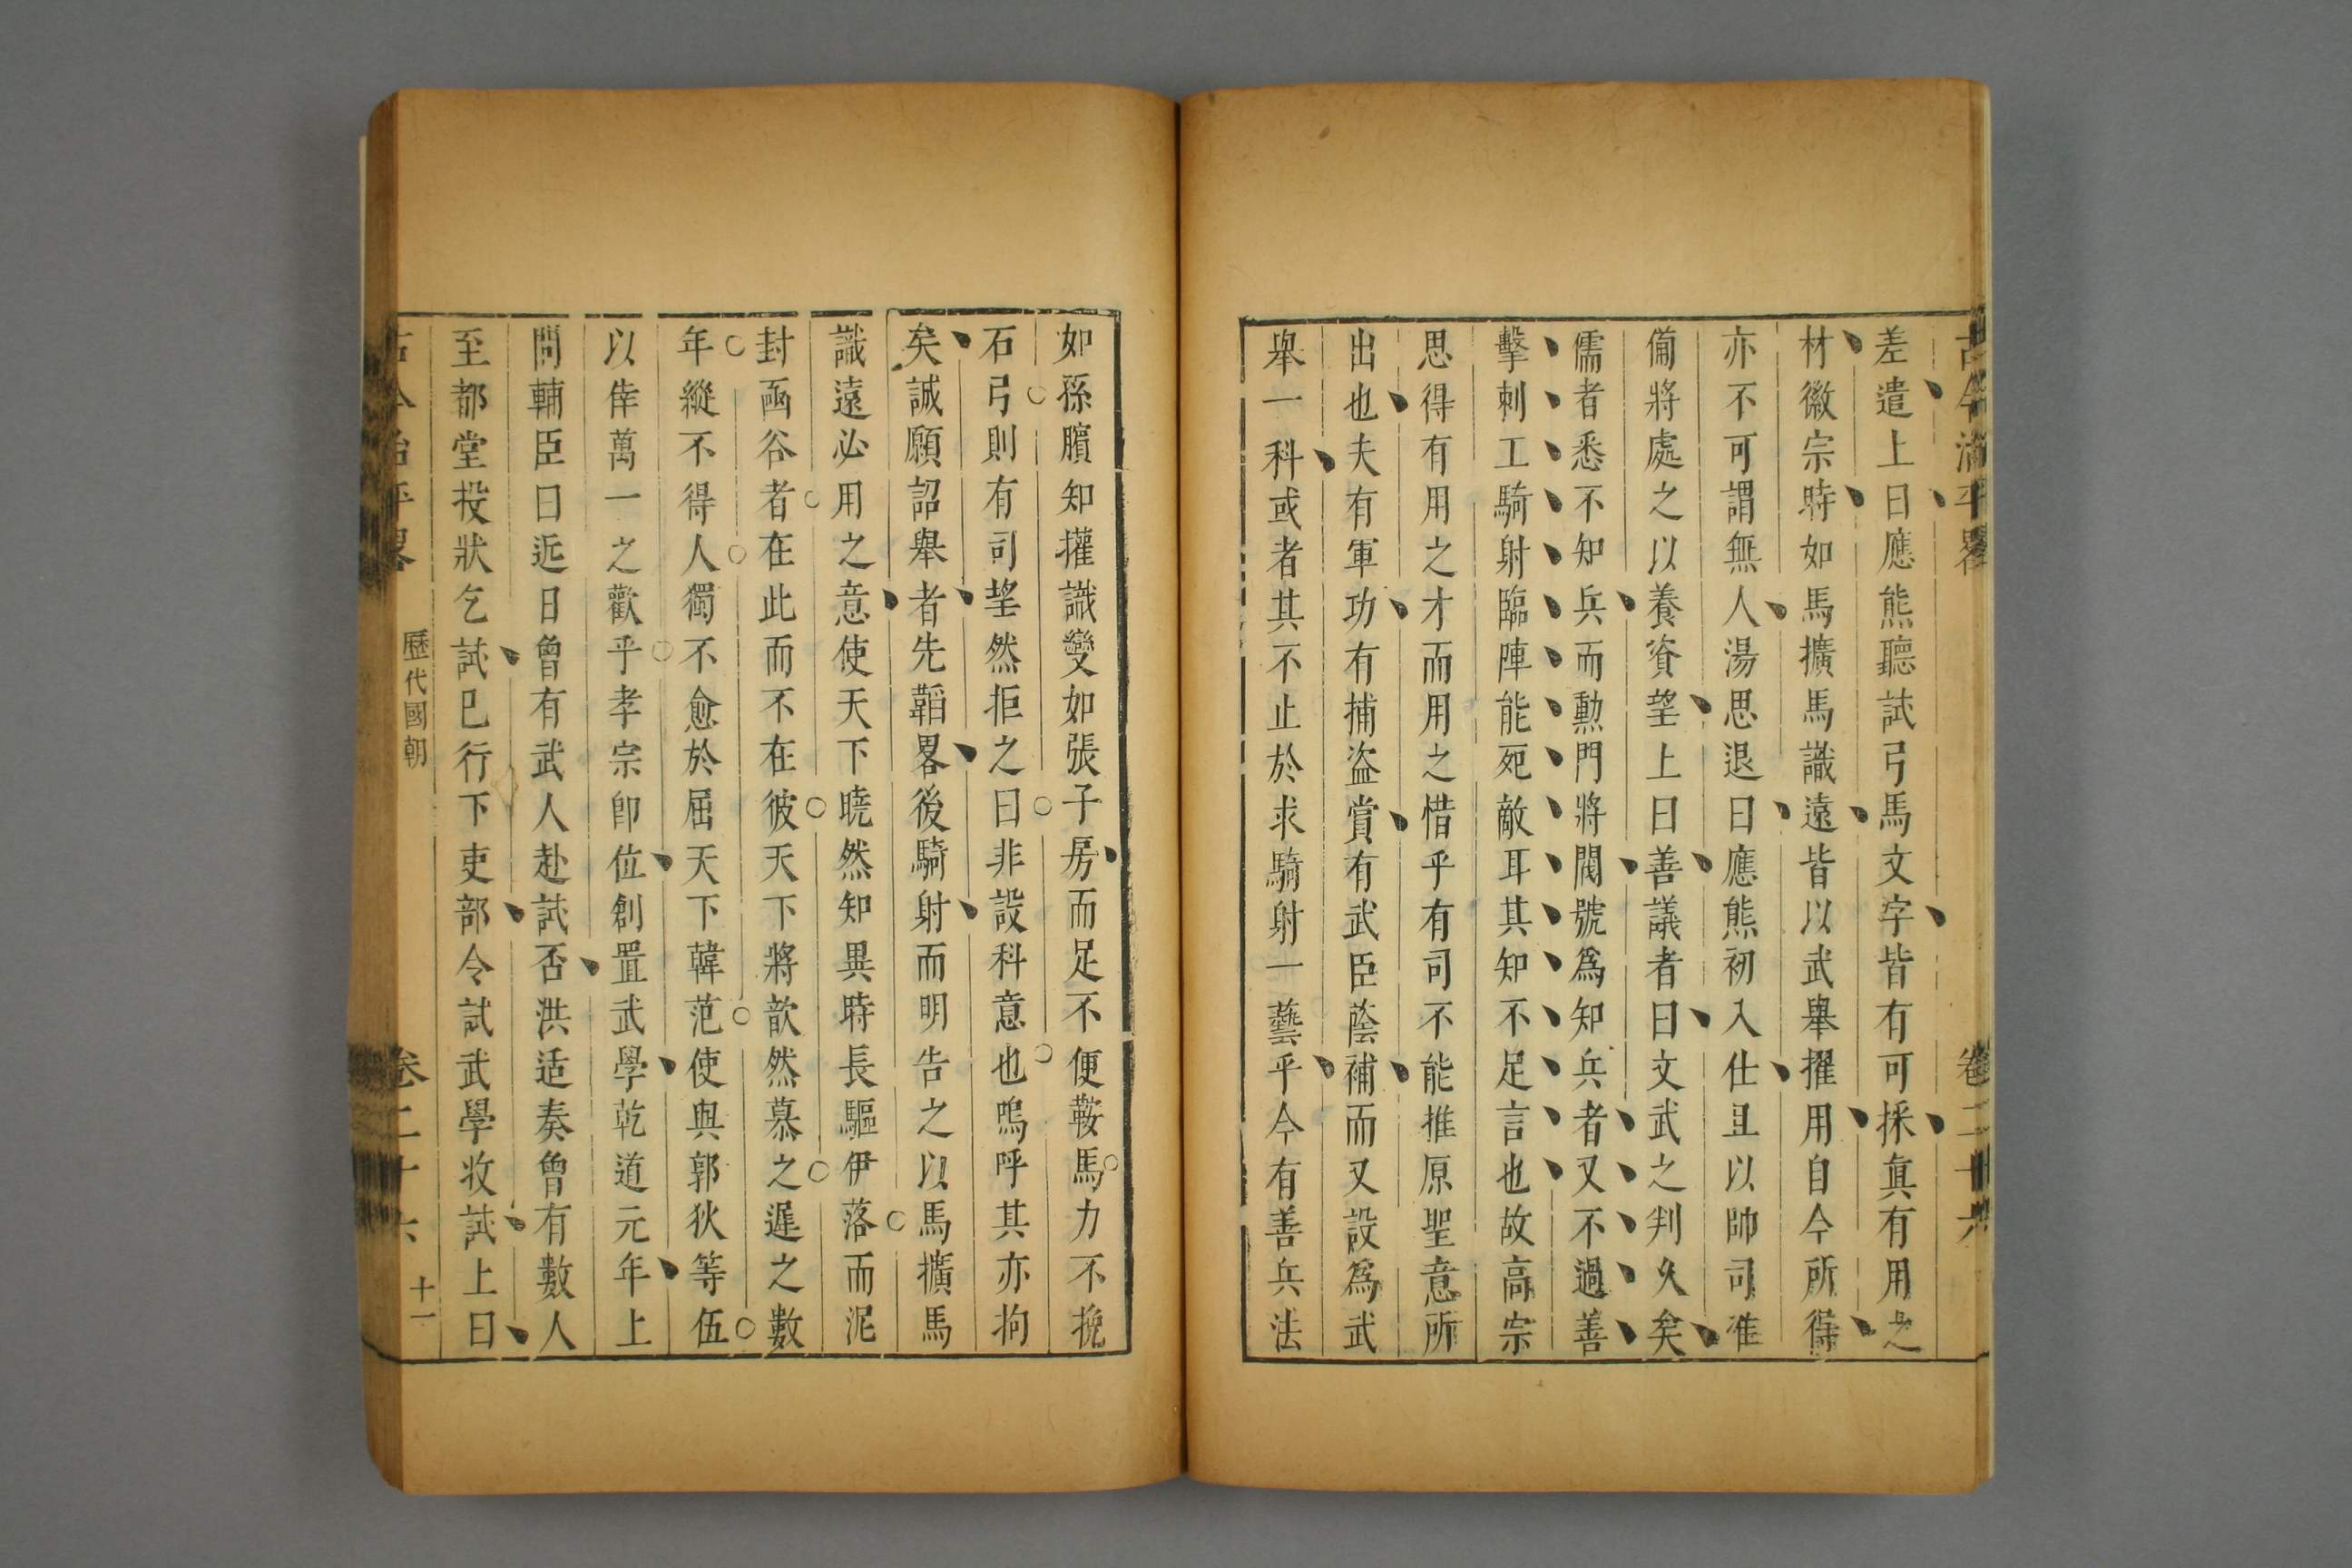 古今治平畧 卷二十六
差遣上曰應熊聽試弓馬文字皆有可採眞有用之
材徽宗時如馬擴馬識遠皆以武舉擢用自今所得
亦不可謂無人湯思退曰應熊初入仕且以帥司准
俻將處之以養資望上曰善議者曰文武之判久矣
儒者悉不知兵而勳門將閥號爲知兵者又不過善
擊刺工騎射臨陣能死敵耳其知不足言也故高宗
思得有用之才而用之惜乎有司不能推原聖意所
出也夫有軍功有捕盗賞有武臣蔭補而又設爲武
舉一科或者其不止於求騎射一藝乎今有善兵法
如孫臏知權識變如張子房而足不便鞍馬力不挽
石弓則有司望然拒之曰非設科意也嗚呼其亦拘
矣誠願詔舉者先韜畧後騎射而明告之以馬擴馬
識遠必用之意使天下曉然知異時長驅伊落而泥
封函谷者在此而不在彼天下將歆然慕之遲之數
年縱不得人獨不愈於屈天下韓范使與郭狄等伍
以倖萬一之歡乎孝宗卽位創置武學乾道元年上
問輔臣曰近日曾有武人赴試否洪适奏曾有數人
至都堂投狀乞試已行下吏部令試武學收試上曰
古今治平畧 歷代國朝 卷二十六 十一